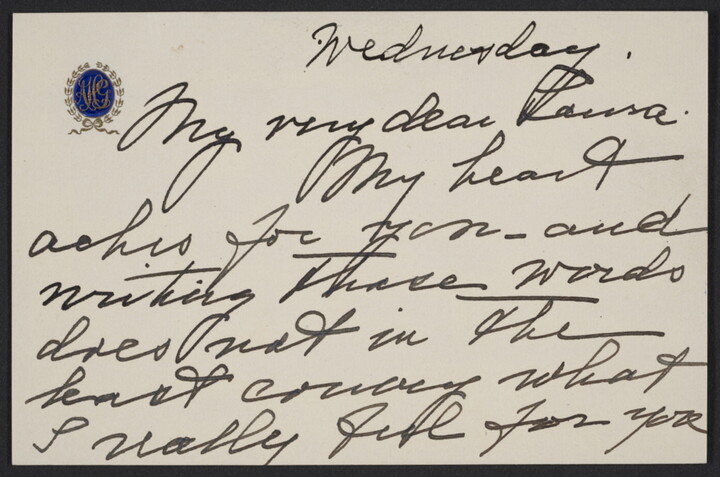 Wednesday.
My very dear Laura.
My heart
aches for you - and
writing those words
does not in the
least convey what
I really feel for you